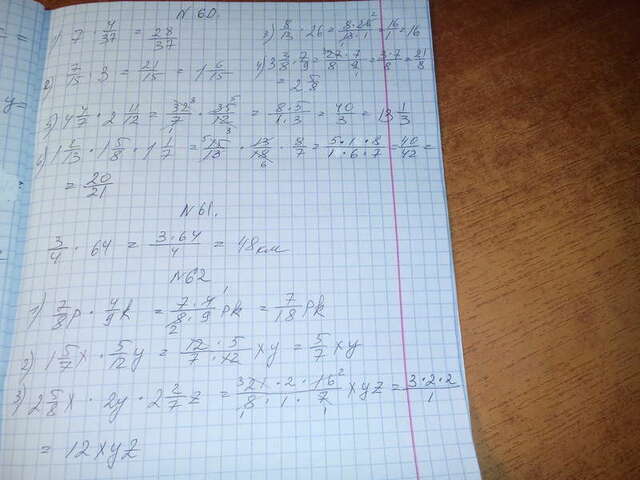 N 60.
1) 7 · 4/37 = 28/37
2) 7/15 · 3 = 21/15 = 1 6/15
3) 8/13 · 26 = 8·26²/13·1 = 16/1 = 16
4) 3 3/8 · 7/9 = 27·7/8·9 = 3·7/8 = 21/8
= 2 5/8
5) 4 4/7 · 2 11/12 = 32/7 · 35/12 = 8·5/1·3 = 40/3 = 13 1/3
6) 1 2/13 · 1 5/8 · 1 1/7 = 15/13 · 13/18 · 8/7 = 5·1·8/1·6·7 = 40/42 =
= 20/21
N 61.
3/4 · 64 = 3·64/4 = 48 км
N62
1) 7/8 p · 4/9 k = 7·4/8·9 pk = 7/18 pk
2) 1 5/7 x · 5/12 y = 12·5/7·12 xy = 5/7 xy
3) 2 5/8 x · 2y · 2 2/7 z = 21·2·16/8·1·7 xyz = 3·2·2/1
= 12xyz